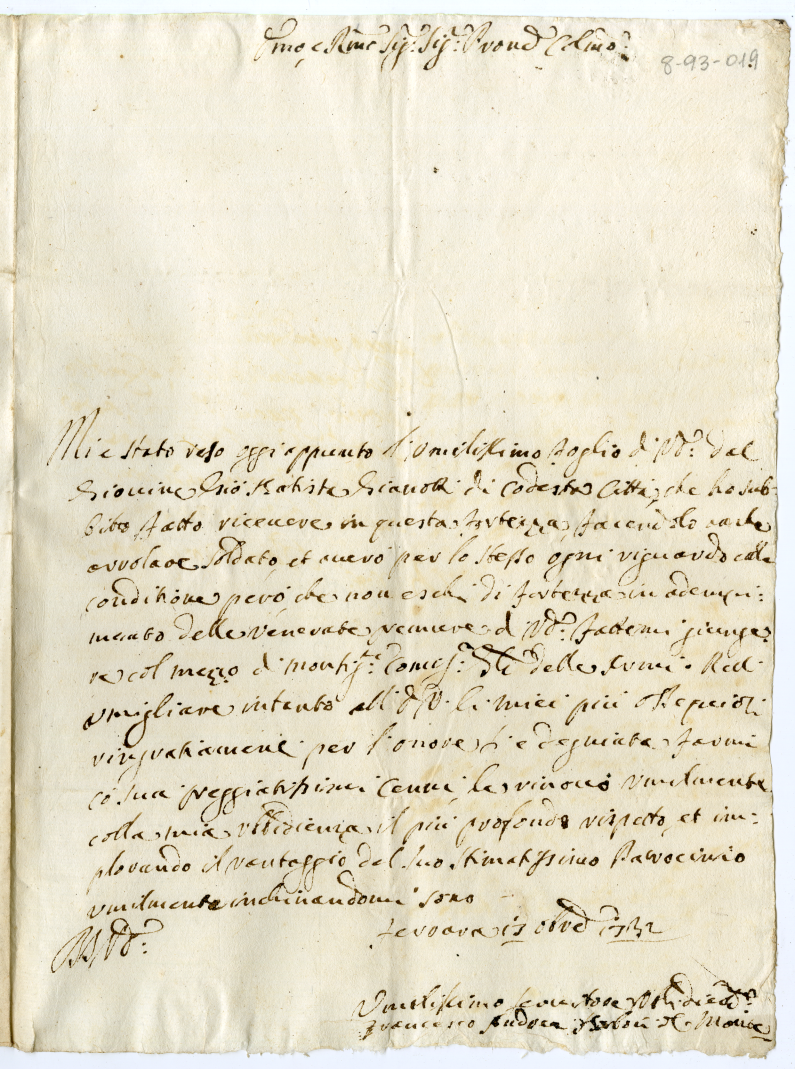 Emo e Rmo Sig.r Sig.r Pron Colmo
8-93-019
Mi è stato reso oggi appunto l'umilissimo foglio di V.
dal Giovine Gio Batista Gianotti di codesta Città, che ho sub-
bito fatto ricevere in questa fortezza, facendolo anche
arrolare soldato, et averò per lo stesso ogni riguardo colla
conditione però che non eschi di fortezza in adempi-
mento delle venerate premure di V. fattemi giunge-
re col mezzo di monsig.r Comes.
delle Armi. Rad-
umigliare intanto all' li miei più ossequiosi
ringratiamenti per l'onore s'è degniata farmi
co suoi preggiatissimi cenni, le rinovo umilmente
colla mia ubbidienza il più profondo rispetto, et im-
plorando il vantaggio del suo stimatissimo Patrocinio
umilmente inchinandomi sono
Ferrara
Umilissimo servitore
Francesco Andrea